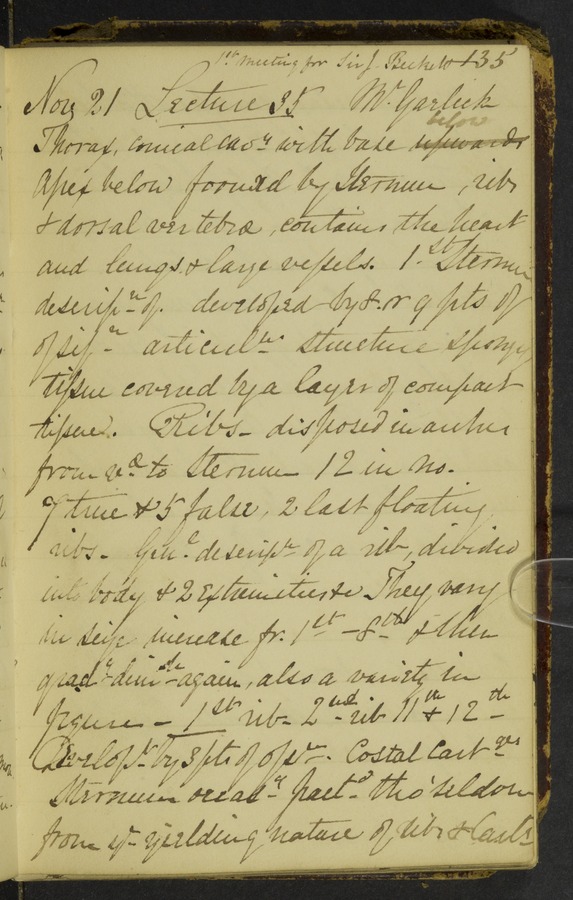 1st meeting for Sir J. 135
Nov 21 Lecture 35 Mr Garlick
below
Thorax, conical cavy with base upwards
Apex below formed by Sternum, ribs
& dorsal vertebræ, contains the heart
and lungs & large vessels. 1st Sternum
descripn of. developed by 8 or 9 pts of
ossifn articuln structure spongy
tissue covered by a layer of compact
tissue. Ribs - disposed in
from to Sternum 12 in no.
7 true & 5 false, 2 last floating
ribs - Genl descript of a rib, divided
into body & 2 Extremities They vary
in size increase fr. 1st - 8th & then
gradly dimsh again, also a variety in
figure - 1st rib - 2nd rib 11th & 12th
Developt by 3 pts of ossn. Costal Cartges
Sternum occasy fractd tho' seldom
from ye yielding nature of ribs & Carts